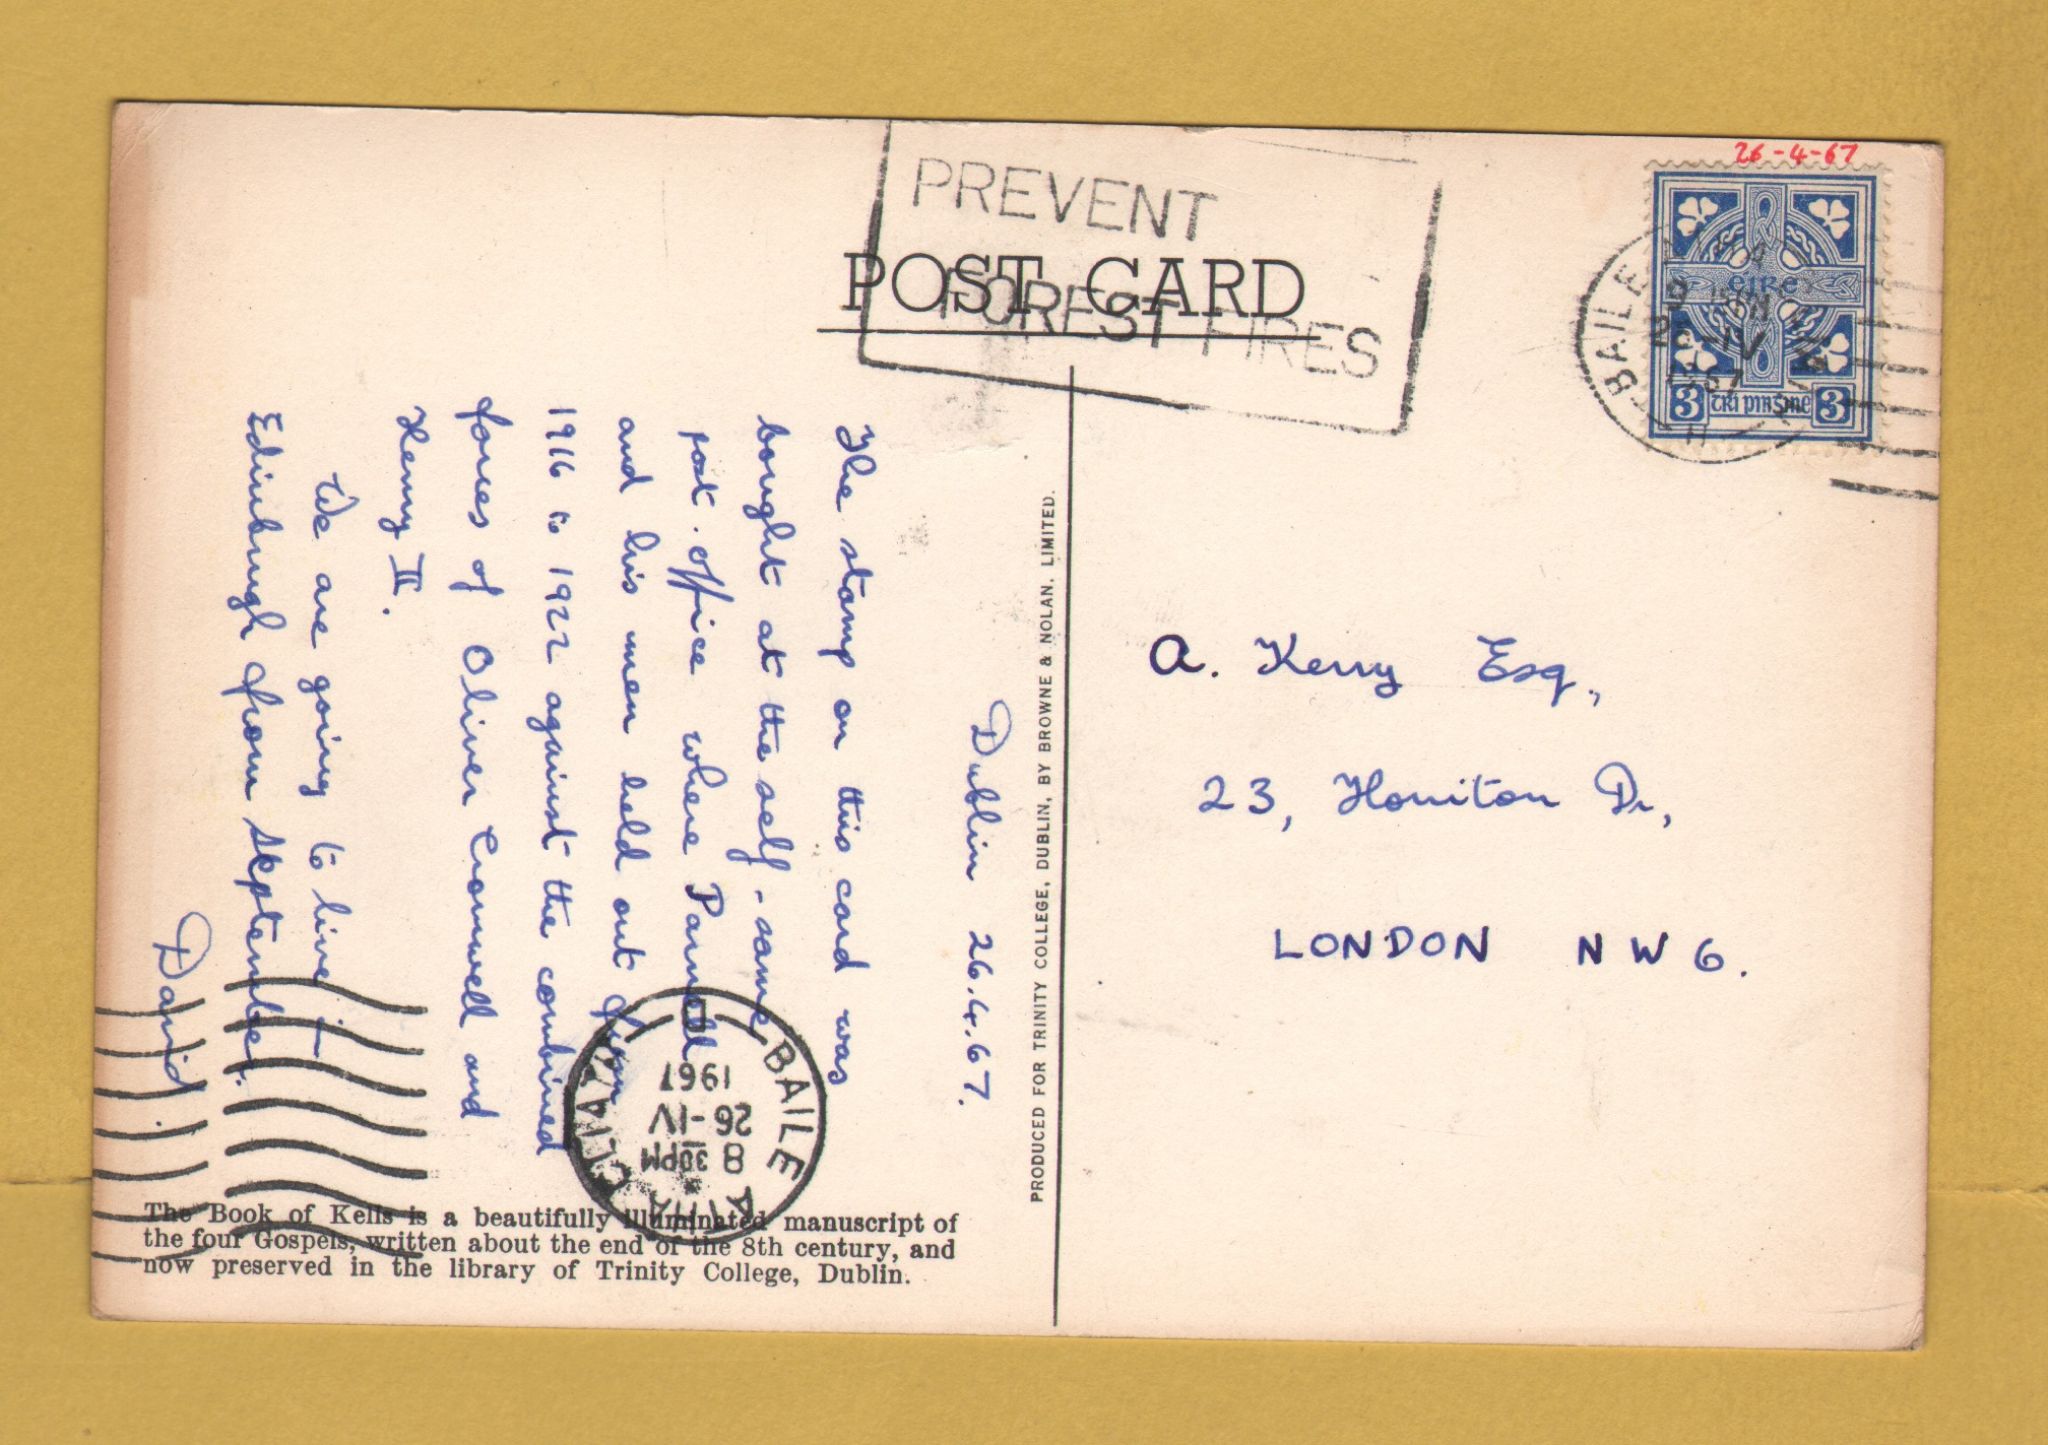 26-4-67
PREVENT
FOREST FIRES
POST CARD
éire
3 trí pinġine 3
BAILE
26-IV
1967
Dublin 26.4.67.
The stamp on this card was
bought at the self-same
post-office where Parnell
and his men held out from
1916 to 1922 against the combined
forces of Oliver Cromwell and
Henry II.
We are going to live in
Edinburgh from September.
David
PRODUCED FOR TRINITY COLLEGE, DUBLIN, BY BROWNE & NOLAN, LIMITED.
A. Kerry Esq.,
23, Honiton Dr,
LONDON NW6.
BAILE ÁTHA CLIATH
8 30PM
26-IV
1967
The Book of Kells is a beautifully illuminated manuscript of
the four Gospels, written about the end of the 8th century, and
now preserved in the library of Trinity College, Dublin.